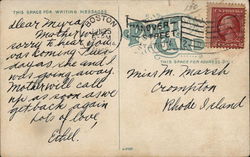 THIS SPACE FOR WRITING MESSAGES
Dear Myra,
Mother was
sorry to hear you
was coming Thurs-
day as she and I
was going away.
Mother will call
up as soon as we
get back again
Lots of love,
Ethel.
BOSTON
HANOVER
STREET
THIS SPACE FOR ADDRESS ONLY
Miss M. Marsh
Crompton
Rhode Island